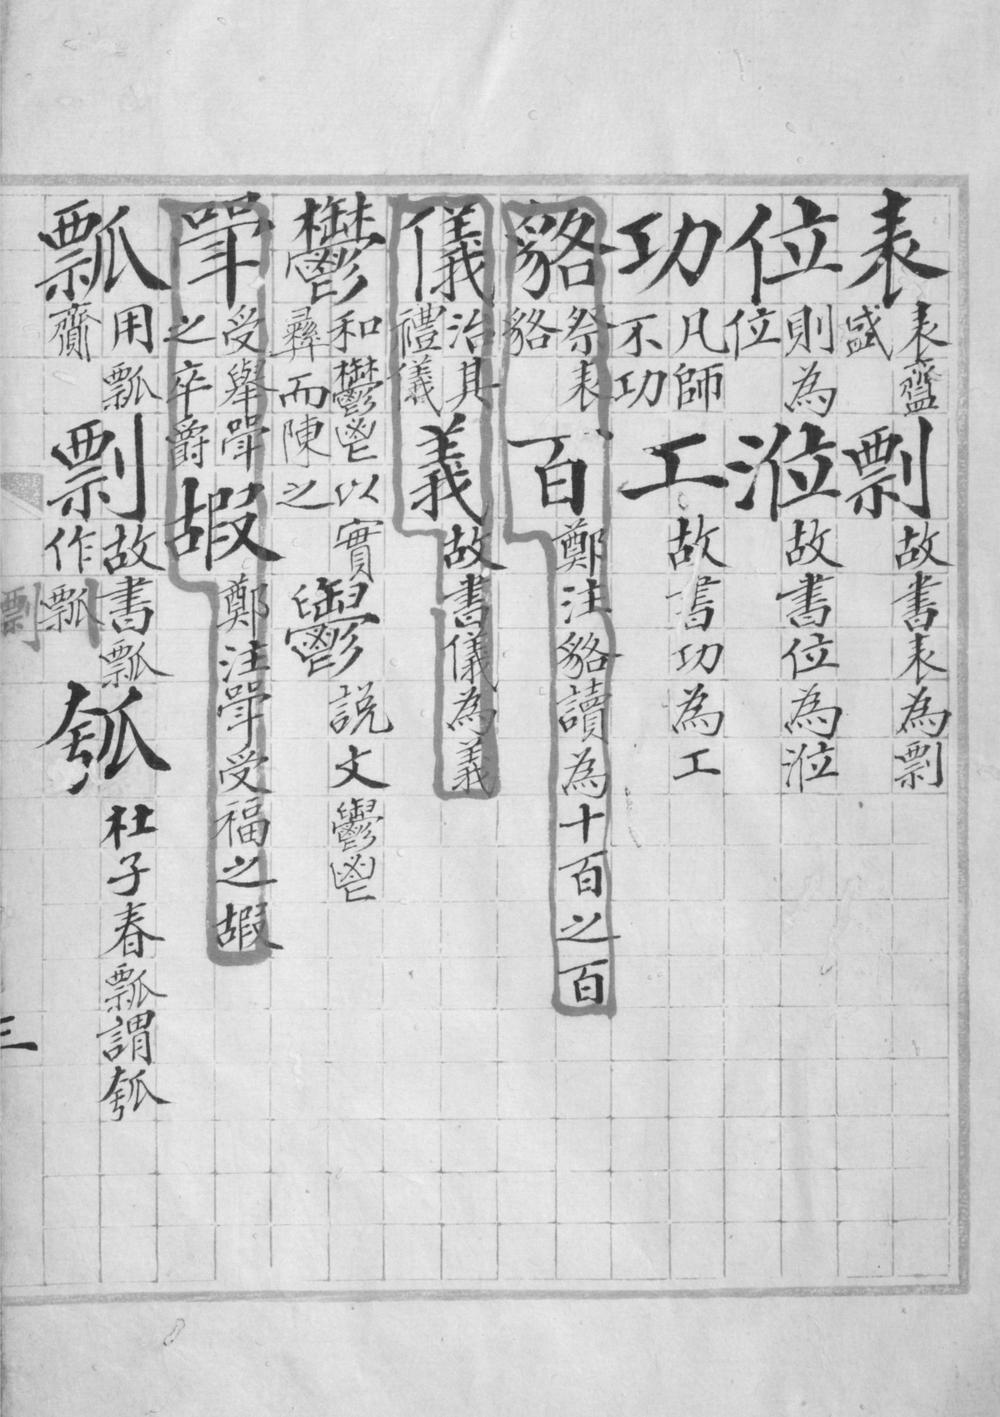 表 表齍盛 剽 故書表為剽
位 則為位 涖 故書位為涖
功 凡師不功 工 故書功為工
貉 祭表貉 百 鄭注貉讀為十百之百
儀 治其禮儀 義 故書儀為義
鬱 和鬱鬯以實彝而陳之 鬱 說文鬱鬯
斝 受舉斝之卒爵 嘏 鄭注斝受福之嘏
瓢 用瓢齎 剽 故書瓢作瓢 瓠 杜子春瓢謂瓠
剽
三